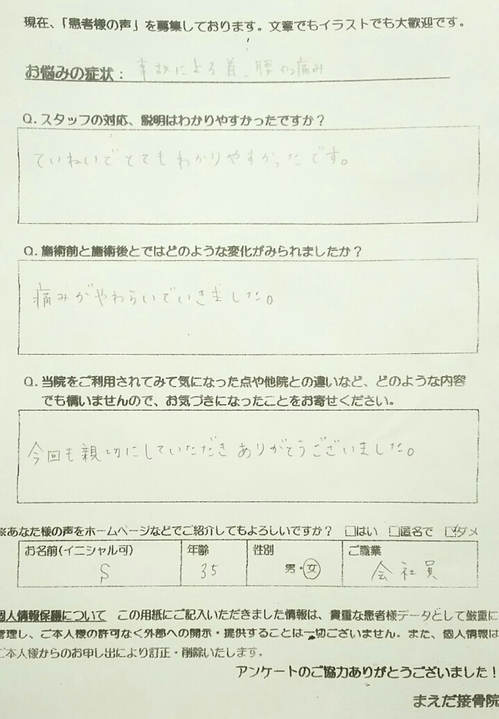 現在、「患者様の声」を募集しております。文章でもイラストでも大歓迎です。
お悩みの症状： 事故による首、腰の痛み
Q.スタッフの対応、説明はわかりやすかったですか？
ていねいでとてもわかりやすかったです。
Q.施術前と施術後とではどのような変化がみられましたか？
痛みがやわらいでいきました。
Q.当院をご利用されてみて気になった点や他院との違いなど、どのような内容
でも構いませんので、お気づきになったことをお寄せください。
今回も親切にしていただきありがとうございました。
※あなた様の声をホームページなどでご紹介してもよろしいですか？ □はい □匿名で ☑ダメ
お名前(イニシャル可) 年齢 性別 ご職業
S 35 男・女 会社員
個人情報保護について この用紙にご記入いただきました情報は、貴重な患者様データとして厳重に
管理し、ご本人様の許可なく外部への開示・提供することは一切ございません。また、個人情報は
ご本人様からのお申し出により訂正・削除いたします。
アンケートのご協力ありがとうございました！
まえだ接骨院